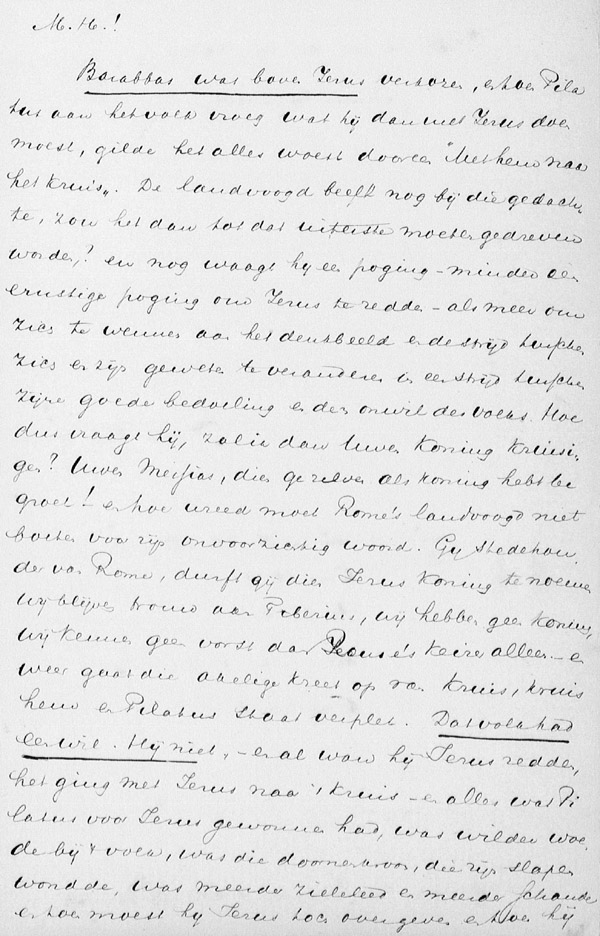 M. H.!
Barabbas was boven Jezus verkozen, en toen Pila
tus aan het volk vroeg wat hij dan met Jezus doen
moest, gilde het alles woest dooreen "Met hem naar
het kruis„. De landvoogd beeft nog bij die gedach-
te, zou het dan tot dat uiterste moeten gedreven
worden,? en nog waagt hij een poging – minder een
ernstige poging om Jezus te redden – als meer om
zich te wennen aan het denkbeeld en de strijd tusschen
zich en zijn geweten te veranderen in een strijd tusschen
zijne goede bedoeling en den onwil des volks. Hoe
dus vraagt hij, zal ik dan Uwen Koning kruisi-
gen? Uwen Messias, dien ge zelven als koning hebt be
groet! – en hoe wreed moet Rome's landvoogd niet
boeten voor zijn onvoorzichtig woord. Gij Stedehou
der van Rome, durft gij dien Jezus Koning te noemen
wij blijven trouw aan Tiberius, wij hebben geen koning,
wij kennen geen vorst dan Rome's Keizer alleen – en
weer gaat die akelige kreet op van Kruis, kruis
hem en Pilatus staat verplet. Dat volk had
een wil. Hij niet, – en al wou hij Jezus redden,
het ging met Jezus naar 't Kruis – en alles wat Pi
latus voor Jezus gewonnen had, was wilder woe
de bij 't volk, was die doornenkroon, die zijn slapen
wondde, was meerder zieleleed en meerder schande
en toen moest hij Jezus toch overgeven en toen hij